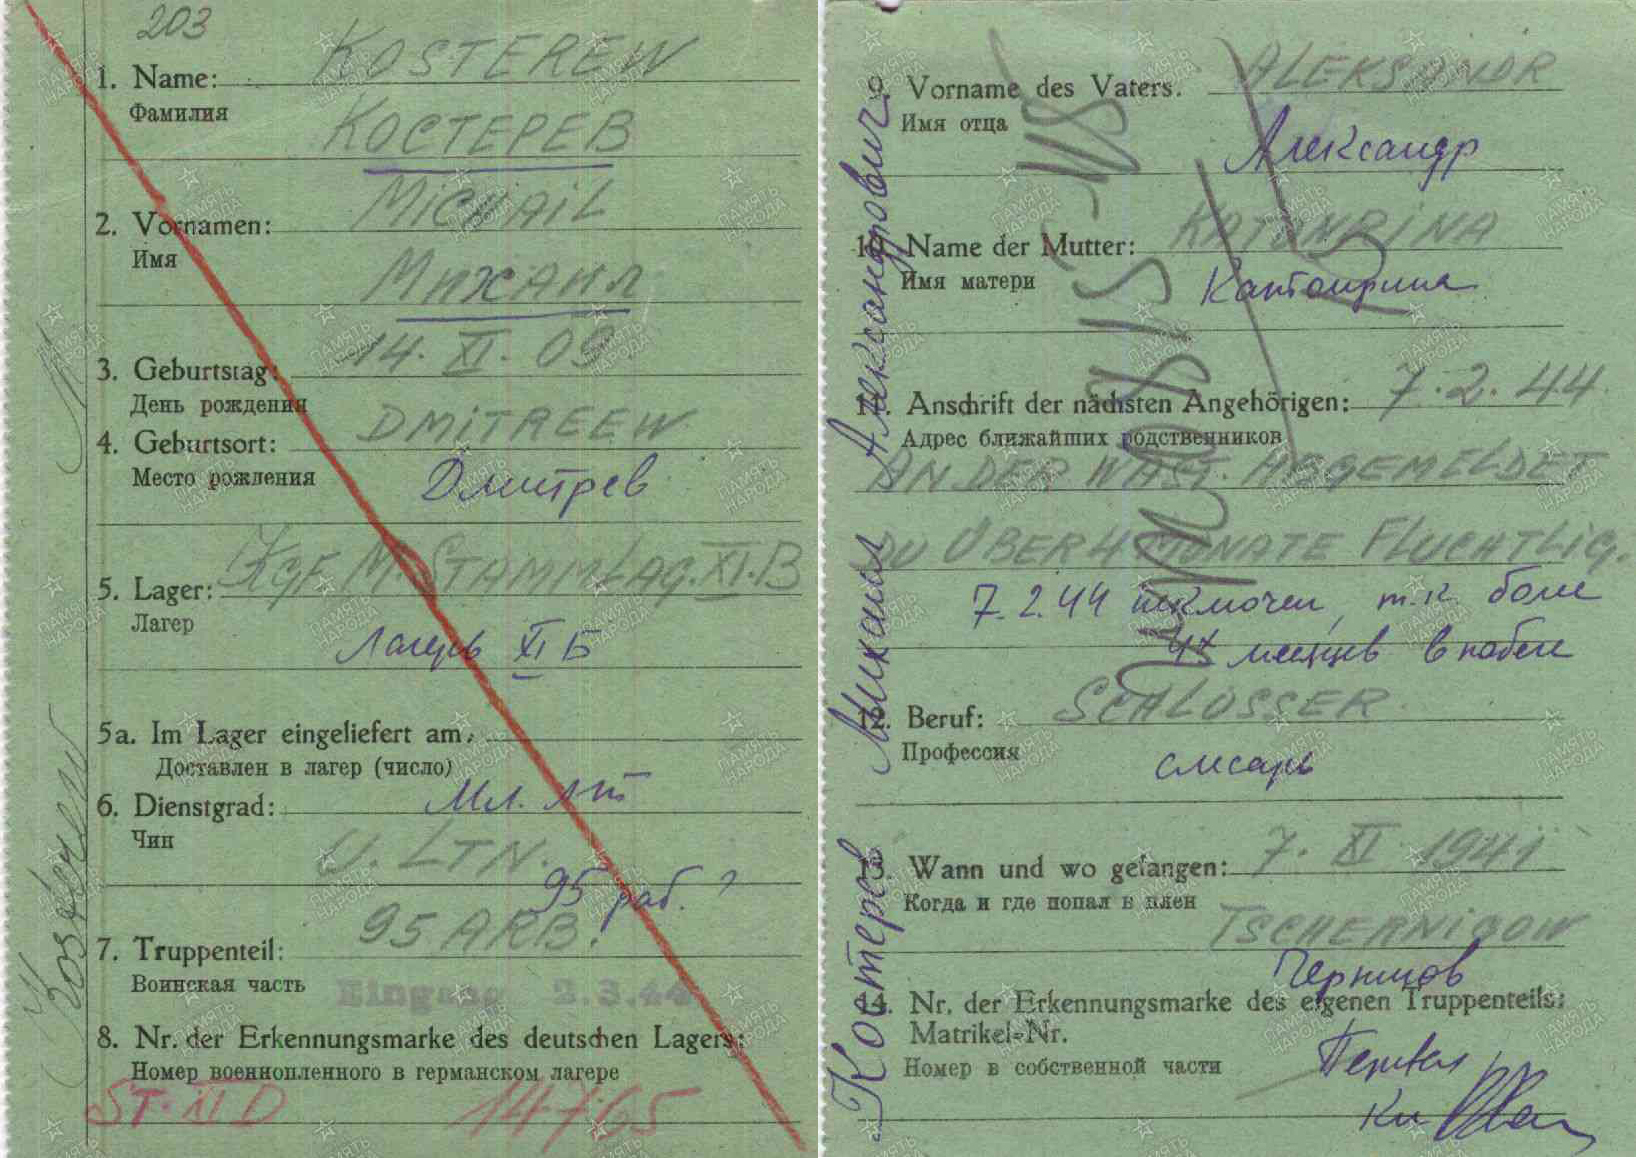 203
1. Name: KOSTEREW
Фамилия
КОСТЕРЕВ
2. Vornamen: MiCHAiL
Имя
Михаил
3. Geburtstag: 14. XI. 09
День рождения
4. Geburtsort: DMiTREEW
Место рождения
Дмитрев
5. Lager: KGF. M. STAMMLAG. XI. B
Лагерь
Лагерь XI Б
5a. Im Lager eingeliefert am:
Доставлен в лагерь (число)
Мл. лт
6. Dienstgrad:
Чин
U. LTN.
95 раб. ?
95 ARB.
7. Truppenteil:
Воинская часть
Eingang 2.3.44
8. Nr. der Erkennungsmarke des deutschen Lagers:
Номер военнопленного в германском лагере
ST. XI D 14765
Kosterew
9. Vorname des Vaters. ALEKSANDR
Имя отца
Александр
10. Name der Mutter: KATONRINA
Имя матери
Катонрина
11. Anschrift der nächsten Angehörigen: 7. 2. 44
Адрес ближайших родственников
AN DER WAST. ABGEMELDET
ÜBER 4 MONATE FLUCHTLIG.
7. 2. 44 исключен, т.к. боле
4х месяцев в побеге
12. Beruf: SCHLOSSER.
Профессия
слесарь
13. Wann und wo gefangen: 7. XI 1941
Когда и где попал в плен
TSCHERNIGOW
Чернигов
14. Nr. der Erkennungsmarke des eigenen Truppenteils:
Matrikel-Nr.
Номер в собственной части
Перевел
Костерев Михаил Александрович